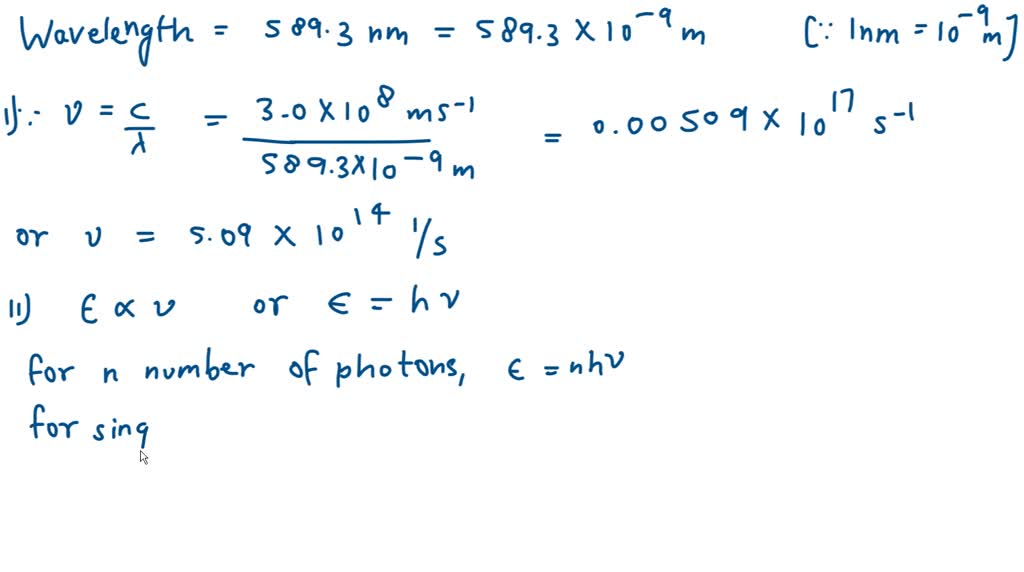 Wavelength = 589.3 nm = 589.3 × 10⁻⁹ m [∵ 1nm = 10⁻⁹ m]
i) ∵ ν = c/λ = 3.0 × 10⁸ ms⁻¹ / 589.3×10⁻⁹ m = 0.00509 × 10¹⁷ s⁻¹
or ν = 5.09 × 10¹⁴ 1/s
ii) ε ∝ ν or ε = hν
for n number of photons, ε = nhν
for sing